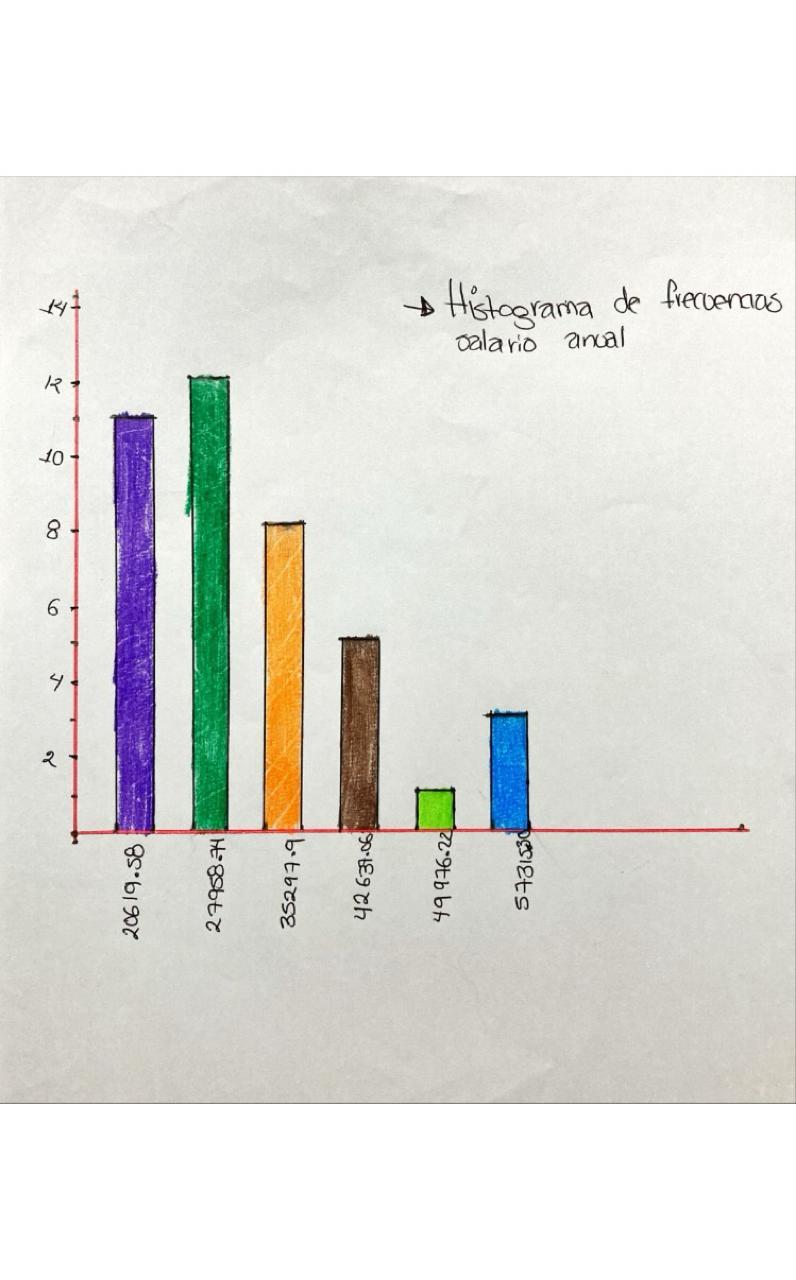 → Histograma de frecuencias
salario anual
14
12
10
8
6
4
2
20619.58
27958.74
35297.9
42637.06
49976.22